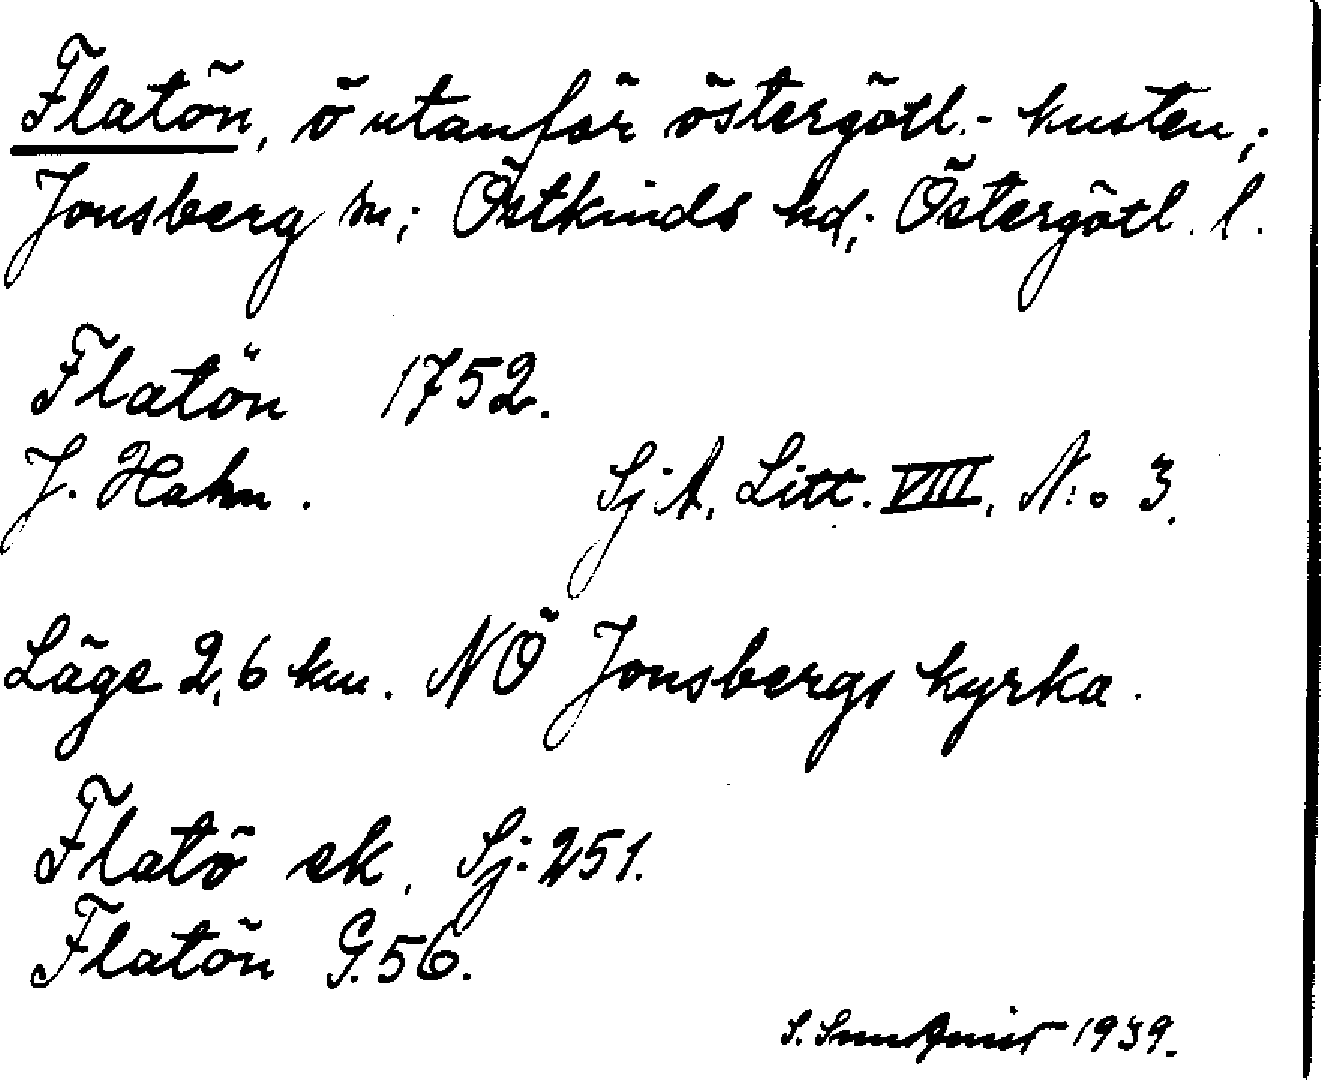 Flatön, ö utanför östergötl.- kusten;
Jonsberg sn; Östkinds hd; Östergötl. l.
Flatön 1752.
J. Hahn. SjA, Litt. VIII, N:o 3.
Läge 2,6 km. NÖ Jonsbergs kyrka.
Flatö ek. Sj. 251.
Flatön G. 56.
S. 1939.